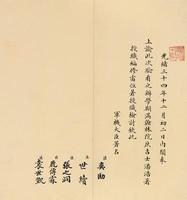 光緒三十四年十二月初二日內閣奉
上諭此次驗看之游學期滿翰林院庶吉士潘浩著
授職編修雷恆著授職檢討欽此
軍機大臣署名
臣奕劻
臣世續
臣張之洞
臣鹿傳霖
臣袁世凱